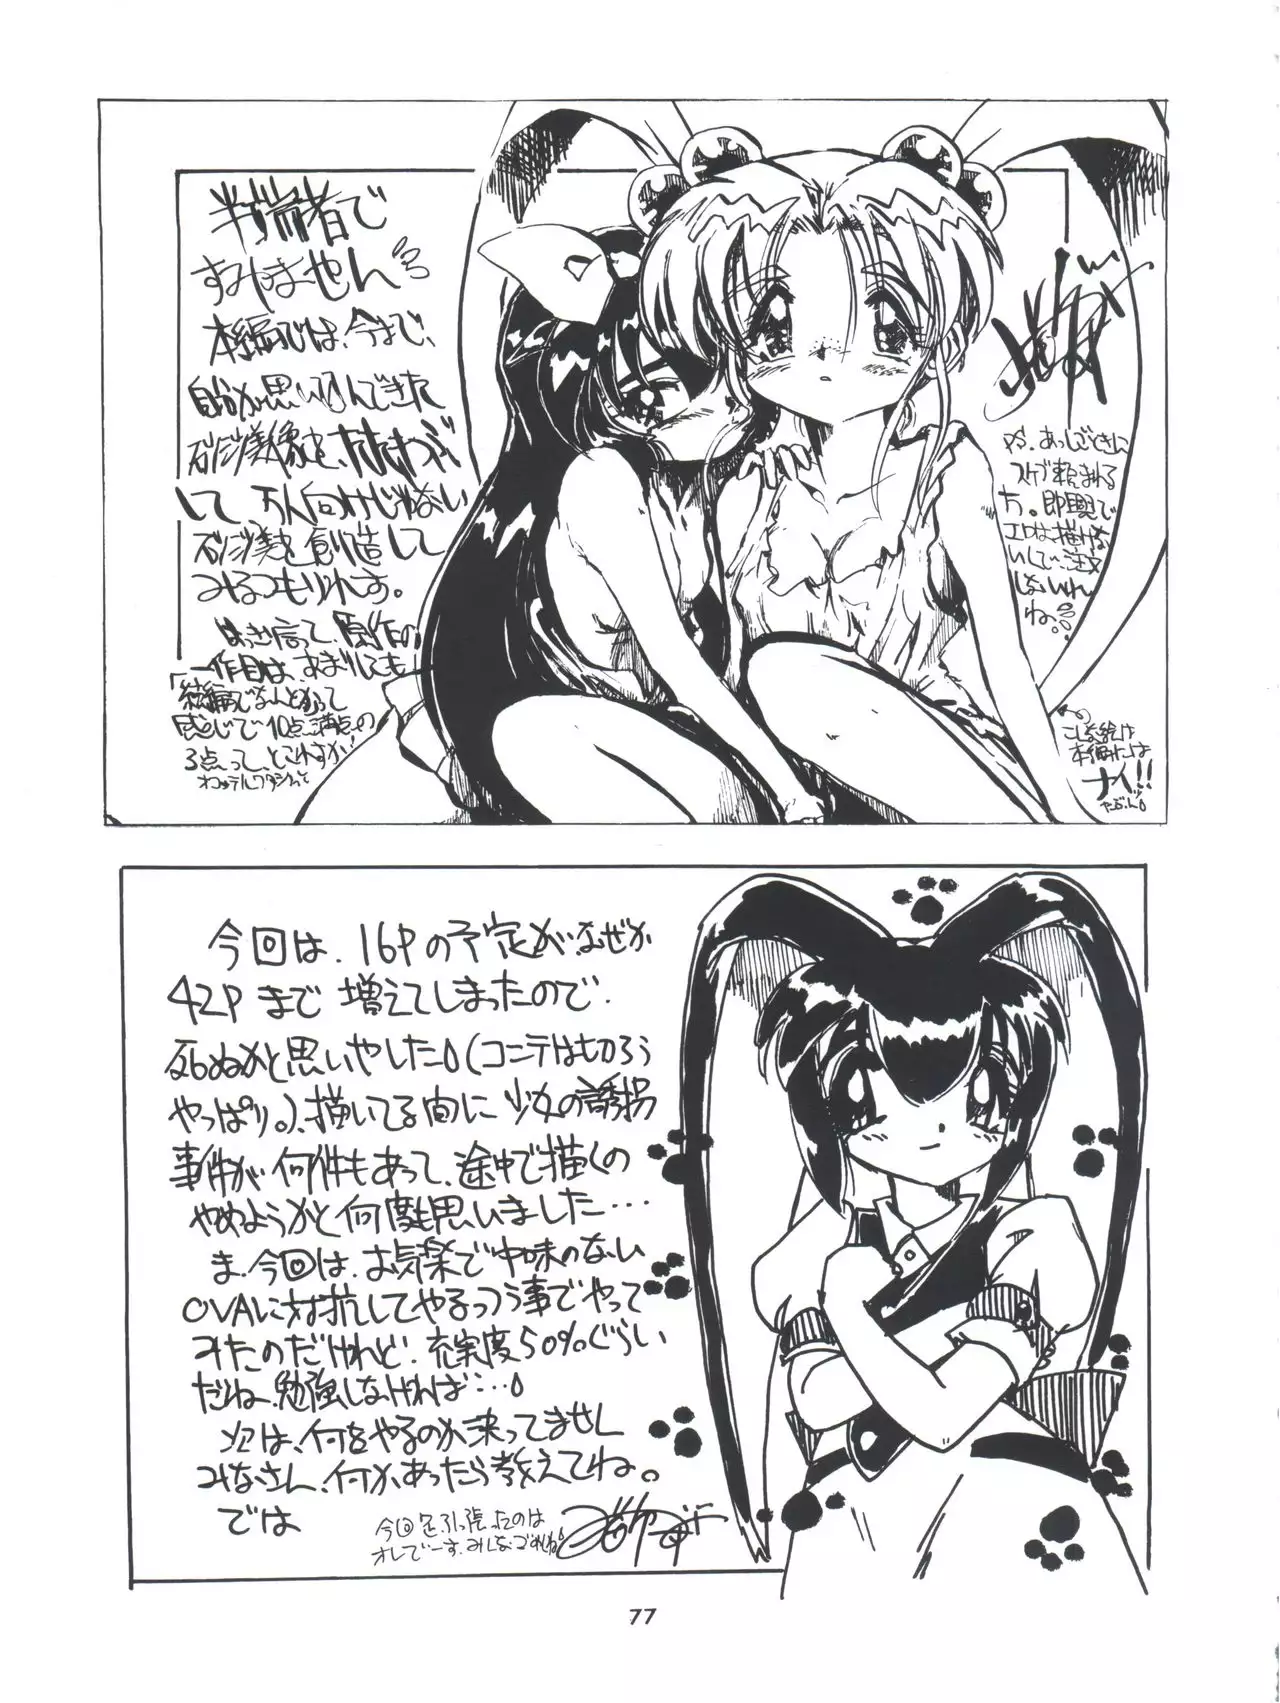 半端者で
すみません
本編では、今まで、
自分が思い込んできた
して万人向けじゃない
創り造して
みるつもりれす。
はっきし言って、原作の
一作目は、あまりしても
「続編でなんとかって
感じで10点満点の
3点って、とこれすか!
PS.あっしごときに
スケブ頼まれる
方。即興で
エロは描けな
いしで、注文
しないれん
ね。
こんな絵は
本編には
ナイ!!
たぶん
今回は、16Pの予定が、なぜか
42Pまで増えてしまったので
死ぬかと思いやした(コンテはもちろう
やっぱり。)、描いてる間に少女の誘拐
事件が何件もあって、途中で描くの
やめようかと何度も思いました…
ま、今回は、お気楽で中味のない
OVAに対抗してやるっつう事でやって
みたのだけれど、充実度50%ぐらい
だね、勉強しなければ…
次は、何をやるのか決ってません
みなさん、何かあったら教えてね。
では
今回足引っ張ったのは
オレでーす、みんなごめんね
77